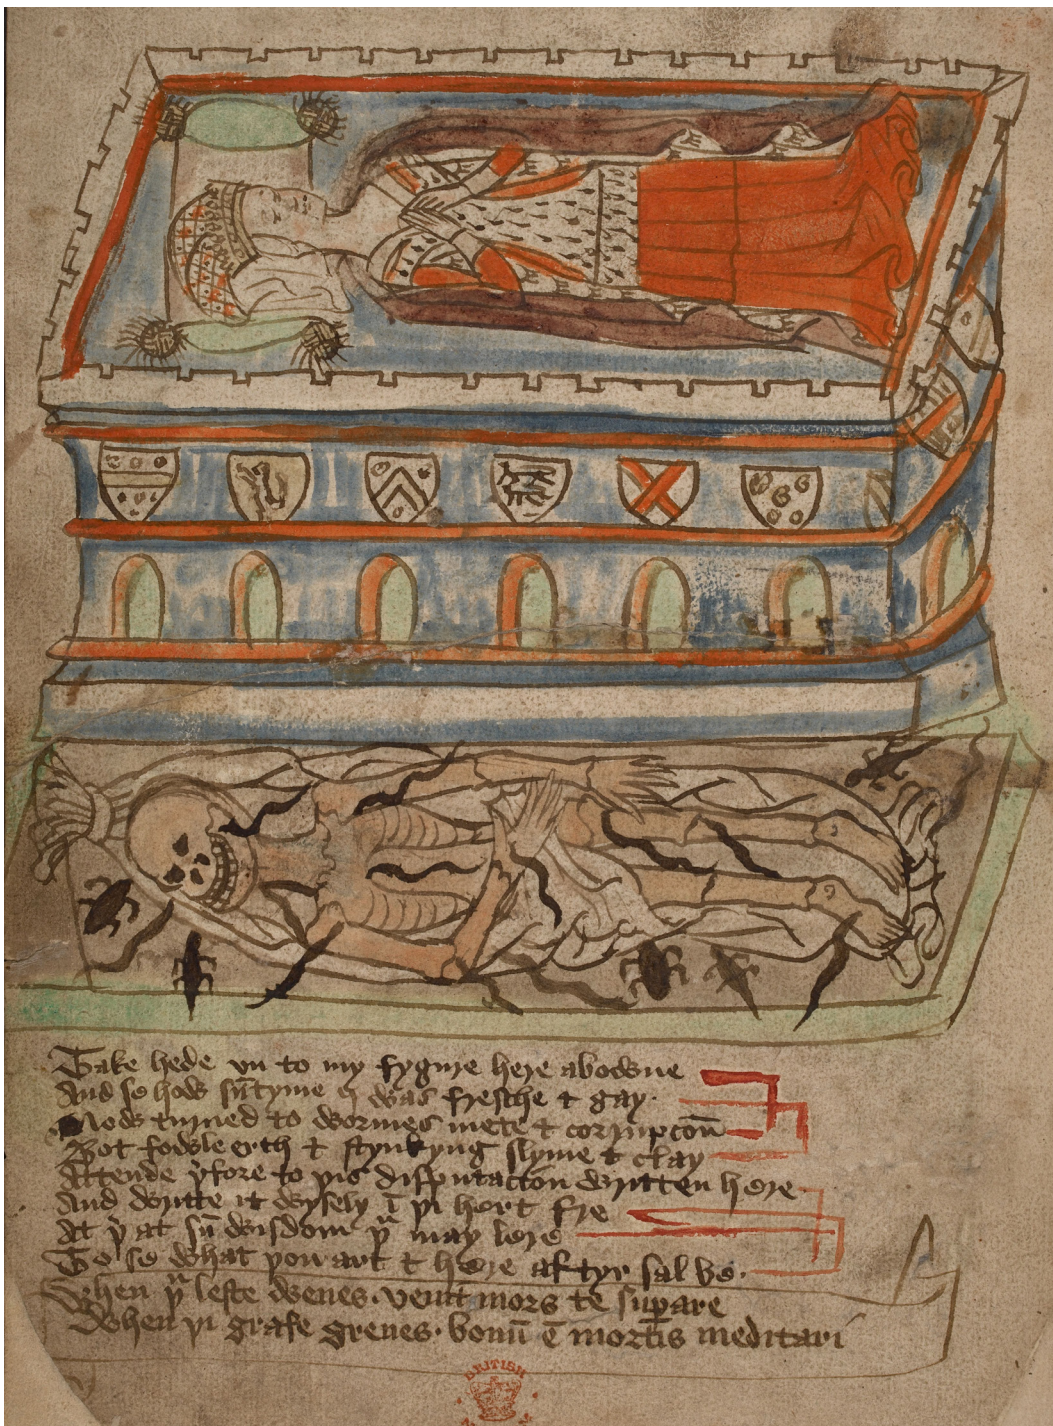 Take hede vn to my fygure here abowne
And se how sūtyme I was fresche & gay
Now turned to wormes mete & corrupcoñ
Bot fowle erth & stynkyng slyme & clay
Attende þfore to þis disputacion written here
And writte it wysely ī þi hert fre
At þ at sū wisdom þu may lere
To se what þou art & here aftyr sal be.
When þu leste wenes. venit mors te supare
When þi grafe grenes. bonū ē mortis meditari
BRITISH